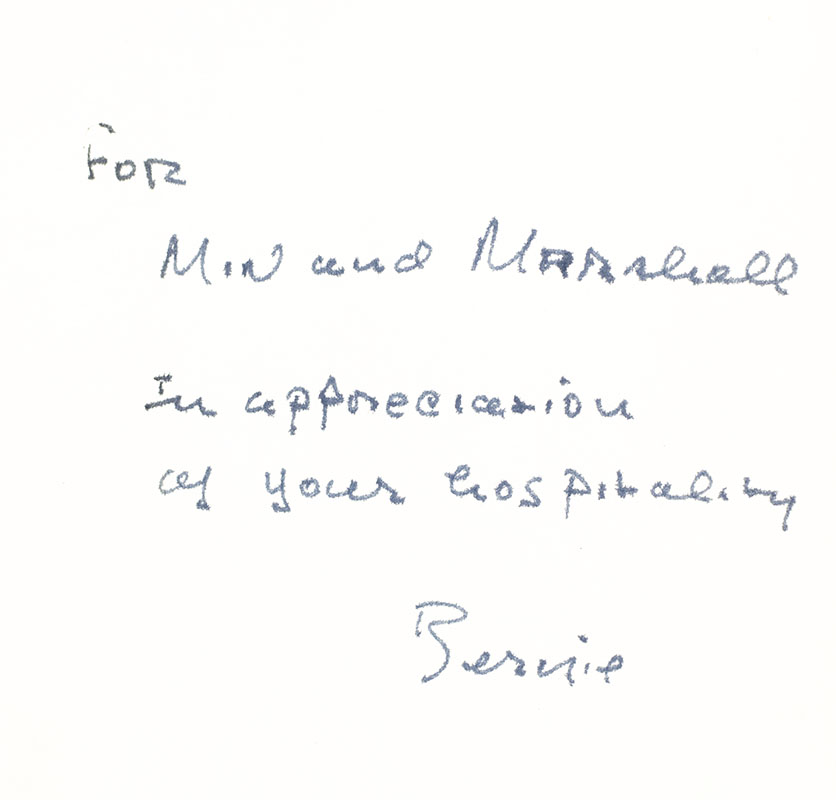 For
Min and Marshall
In appreciation
of your hospitality
Bernie